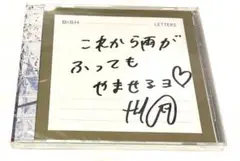 BiSH
LETTERS
これから雨が
ふっても
やませるヨ♡